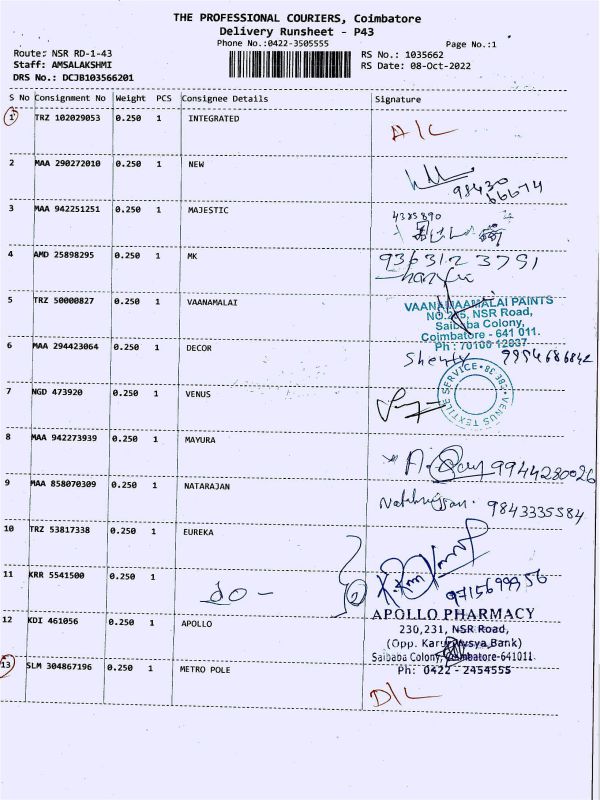 THE PROFESSIONAL COURIERS, Coimbatore
Delivery Runsheet - P43
Phone No.:0422-3505555
Page No.:1
Route: NSR RD-1-43
RS No.: 1035662
Staff: AMSALAKSHMI
RS Date: 08-Oct-2022
DRS No.: DCJB103566201
S No Consignment No Weight PCS Consignee Details Signature
1 TRZ 102029053 0.250 1 INTEGRATED
2 MAA 290272010 0.250 1 NEW
98430
66674
3 MAA 942251251 0.250 1 MAJESTIC
4385890
4 AMD 25898295 0.250 1 MK 9363123791
5 TRZ 50000827 0.250 1 VAANAMALAI
VAANAMAAMALAI PAINTS
NO.215, NSR Road,
Saibaba Colony,
Coimbatore - 641 011.
Ph : 70100 12037
6 MAA 294423064 0.250 1 DECOR
7 NGD 473920 0.250 1 VENUS
VENUS TEXTILE SERVICE
8 MAA 942273939 0.250 1 MAYURA
9944280026
9 MAA 858070309 0.250 1 NATARAJAN
9843335584
10 TRZ 53817338 0.250 1 EUREKA
11 KRR 5541500 0.250 1 do - 2
9715699956
12 KDI 461056 0.250 1 APOLLO
APOLLO PHARMACY
230,231, NSR Road,
(Opp. Karur Vysya Bank)
Saibaba Colony, Coimbatore-641011.
Ph: 0422 - 2454555
13 SLM 304867196 0.250 1 METRO POLE D/L